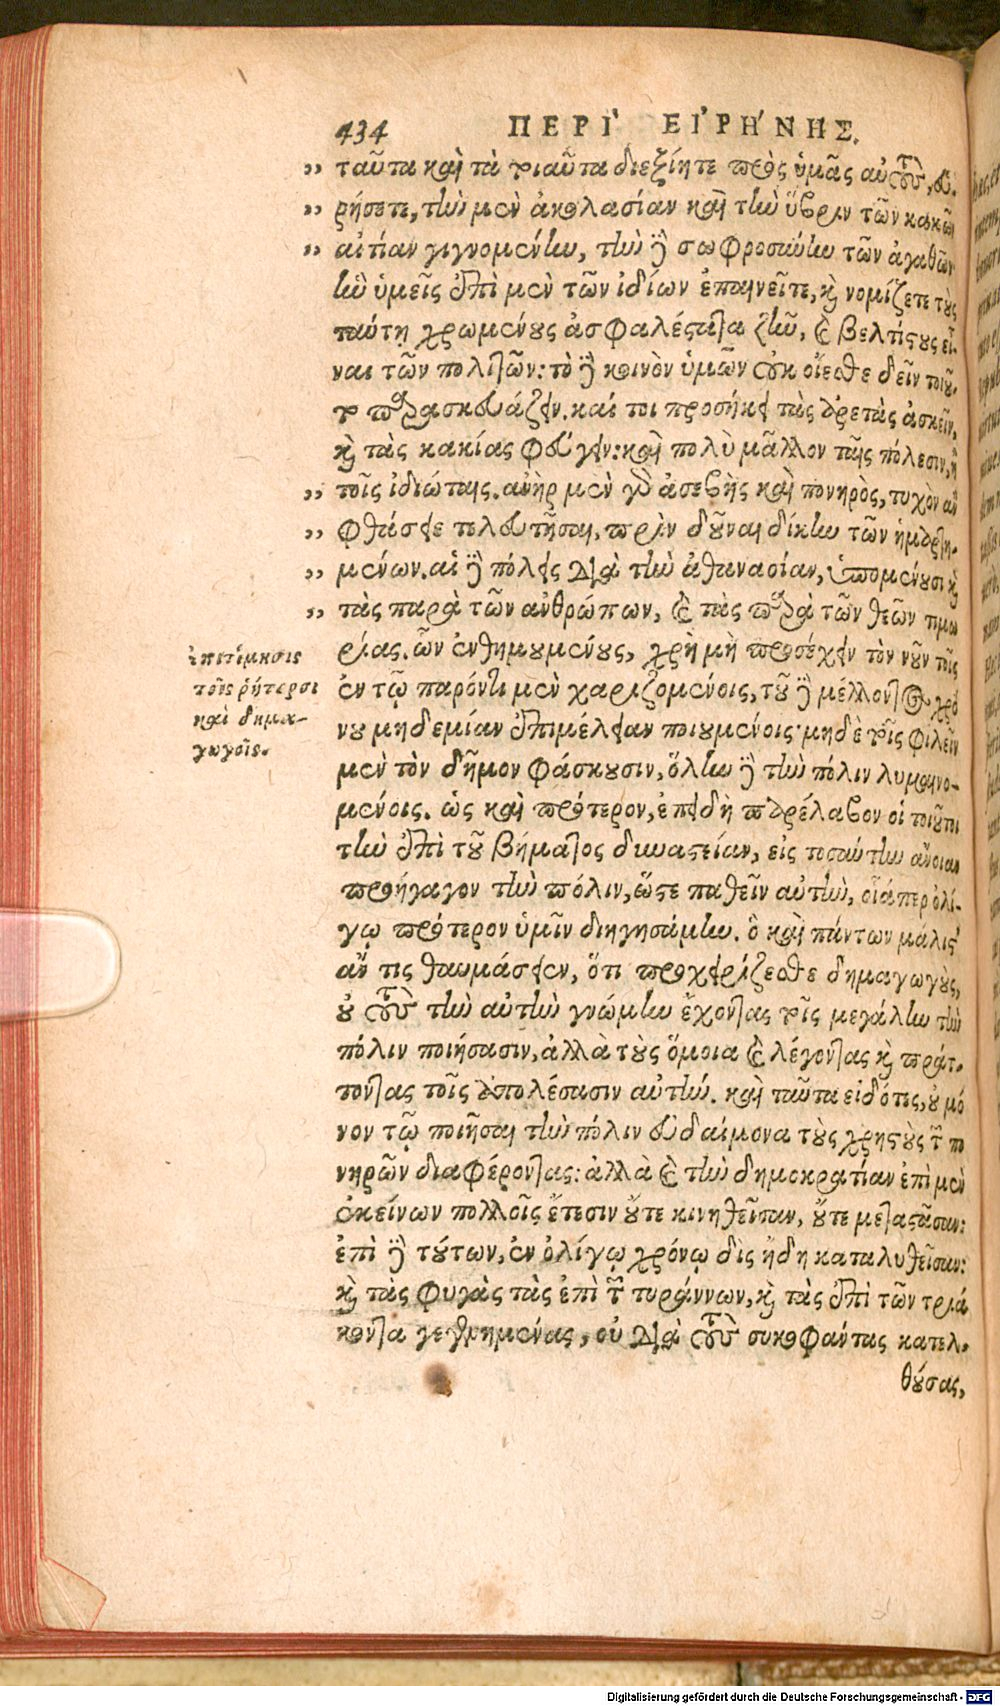 434 ΠΕΡΙ' ΕΙ'ΡΗ'ΝΗΣ.
,, ταῦτα καὶ τὰ τοιαῦτα διεξίητε πρὸς ὑμᾶς αὐτοὺς, εὑ-
,, ρήσετε, τὴν μὲν ἀκολασίαν καὶ τὴν ὕβριν τῶν κακῶν
,, αἰτίαν γιγνομένην, τὴν δὲ σωφροσύνην τῶν ἀγαθῶν
ἣν ὑμεῖς ἐπὶ μὲν τῶν ἰδίων ἐπαινεῖτε, καὶ νομίζετε τοὺς
ταύτῃ χρωμένους ἀσφαλέστατα ζῆν, καὶ βελτίστους εἶ-
ναι τῶν πολιτῶν: τὸ δὲ κοινὸν ὑμῶν οὐκ οἴεσθε δεῖν τοιοῦ-
το παρασκευάζειν. καί τοι προσήκει τὰς ἀρετὰς ἀσκεῖν,
καὶ τὰς κακίας φεύγειν: καὶ πολὺ μᾶλλον ταῖς πόλεσιν, ἢ
,, τοῖς ἰδιώταις. ἀνὴρ μὲν γὰρ ἀσεβὴς καὶ πονηρὸς, τυχὸν ἂν
,, φθάσειε τελευτήσας, πρὶν δοῦναι δίκην τῶν ἡμαρτη-
,, μένων. αἱ δὲ πόλεις διὰ τὴν ἀθανασίαν, ὑπομένουσι καὶ
,, τὰς παρὰ τῶν ἀνθρώπων, καὶ τὰς παρὰ τῶν θεῶν τιμω
ρίας. ὧν ἐνθημουμένους, χρὴ μὴ προσέχειν τὸν νοῦν τοῖς
ἐν τῷ παρόντι μὲν χαριζομένοις, τοῦ δὲ μέλλοντος χρό
νου μηδεμίαν ἐπιμέλειαν ποιουμένοις· μηδὲ τοῖς φιλεῖν
μὲν τὸν δῆμον φάσκουσιν, ὅλην δὲ τὴν πόλιν λυμαινο-
μένοις. ὡς καὶ πρότερον, ἐπειδὴ παρέλαβον οἱ τοιοῦτοι
τὴν ἐπὶ τοῦ βήματος δυναστείαν, εἰς τοσαύτην ἄνοιαν
προήγαγον τὴν πόλιν, ὥστε παθεῖν αὐτὴν, οἷά περ ὀλί-
γῳ πρότερον ὑμῖν διηγησάμην. ὃ καὶ πάντων μάλιστ'
ἄν τις θαυμάσειεν, ὅτι προχειρίζεσθε δημαγωγοὺς,
οὐ τοὺς τὴν αὐτὴν γνώμην ἔχοντας τοῖς μεγάλην τὴν
πόλιν ποιήσασιν, ἀλλὰ τοὺς ὅμοια καὶ λέγοντας καὶ πράτ-
τοντας τοῖς ἀπολέσασιν αὐτήν. καὶ ταῦτα εἰδότες, οὐ μό
νον τῷ ποιῆσαι τὴν πόλιν εὐδαίμονα τοὺς χρηστοὺς τῶν πο
νηρῶν διαφέροντας: ἀλλὰ καὶ τὴν δημοκρατίαν ἐπὶ μὲν
ἐκείνων πολλοῖς ἔτεσιν οὔτε κινηθεῖσαν, οὔτε μεταστᾶσαν:
ἐπὶ δὲ τούτων, ἐν ὀλίγῳ χρόνῳ δὶς ἤδη καταλυθεῖσαν:
καὶ τὰς φυγὰς τὰς ἐπὶ τῶν τυράννων, καὶ τὰς ἐπὶ τῶν τριά
κοντα γεγενημένας, οὐ διὰ τοὺς συκοφάντας κατελ-
θούσας,
ἐπιτίμησις
τοῖς ῥήτορσι
καὶ δημα-
γωγοῖς.
Digitalisierung gefördert durch die Deutsche Forschungsgemeinschaft - DFG